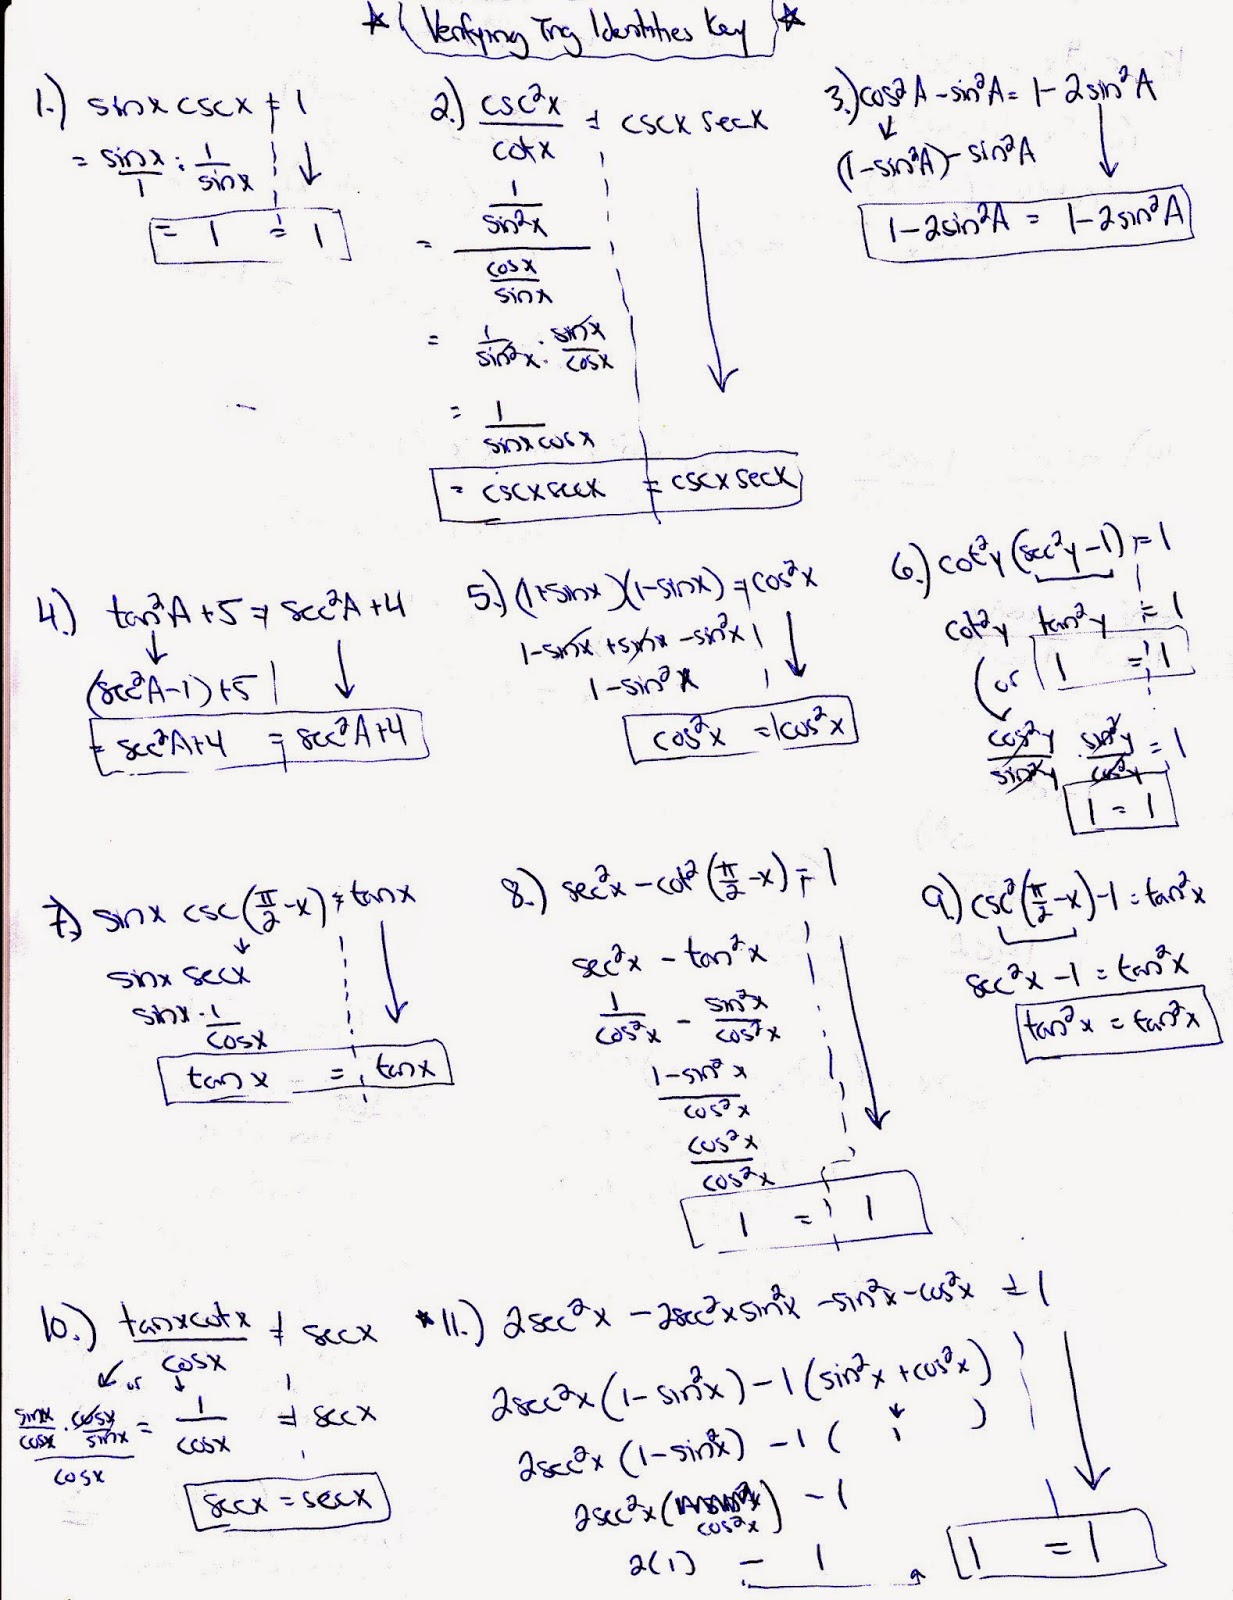 * Verifying Trig Identities Key *
1.) sinx cscx = 1
= sinx/1 · 1/sinx
= 1 = 1
2.) csc²x/cotx = cscx secx
= (1/sin²x)/(cosx/sinx)
= 1/sin²x · sinx/cosx
= 1/sinxcosx
= cscxsecx = cscx secx
3.) cos²A - sin²A = 1-2sin²A
(1-sin²A)-sin²A
1-2sin²A = 1-2sin²A
4.) tan²A+5 = sec²A+4
(sec²A-1)+5
= sec²A+4 = sec²A+4
5.) (1+sinx)(1-sinx) = cos²x
1-sinx+sinx-sin²x
1-sin²x
cos²x = cos²x
6.) cot²y(sec²y-1) = 1
cot²y tan²y = 1
(or 1 = 1
cos²y/sin²y · sin²y/cos²y = 1
1 = 1
7.) sinx csc(π/2-x) = tanx
sinx secx
sinx · 1/cosx
tanx = tanx
8.) sec²x - cot²(π/2-x) = 1
sec²x - tan²x
1/cos²x - sin²x/cos²x
1-sin²x/cos²x
cos²x/cos²x
1 = 1
9.) csc²(π/2-x)-1 = tan²x
sec²x-1 = tan²x
tan²x = tan²x
10.) tanxcotx/cosx = secx
or
(sinx/cosx · cosx/sinx)/cosx = 1/cosx = secx
secx = secx
*11.) 2sec²x - 2sec²xsin²x - sin²x - cos²x = 1
2sec²x(1-sin²x)-1(sin²x+cos²x)
2sec²x(1-sin²x) -1( 1 )
2sec²x(cos²x) -1
2(1) - 1
1 = 1